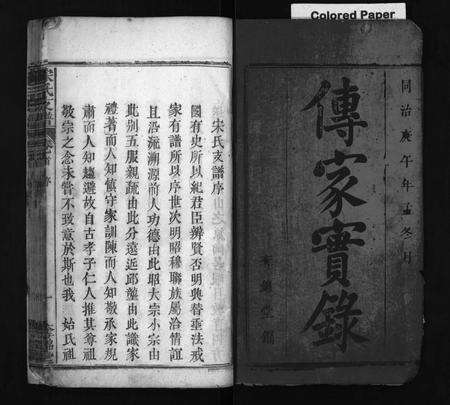 Colored Paper
同治庚午年孟冬月
傳家實錄
宋氏支譜序
國有史所以紀君臣辨賢否明興替垂法戒
家有譜所以序世次明昭穆聯族屬洽情誼
且沿流溯源前人功德由此昭大宗小宗由
此别五服親疏由此分遠近邱壟由此識家
禮著而人知慎守家訓陳而人知敬承家規
肅而人知遠避故自古孝子仁人推其尊祖
敬宗之念未嘗不致意於斯也我 始氏祖
宋氏支譜
序
一